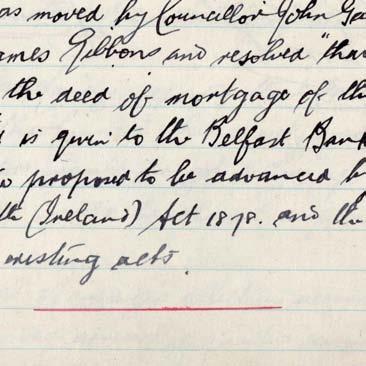 as moved by Councillor John Ga
ames Gibbons and resolved "tha
the deed of mortgage of th
is given to the Belfast Ban
proposed to be advanced b
lth (Ireland) Act 1878. and the
existing acts.